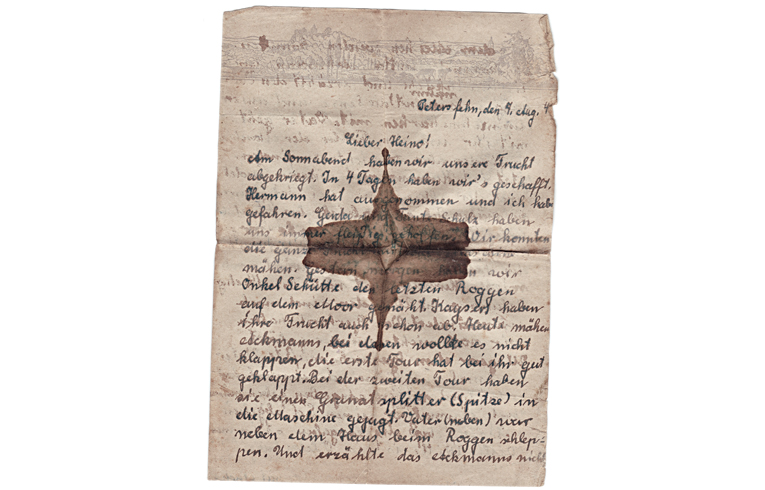 Petersfehn, den 7. Aug. 4
Lieber Heino!
Am Sonnabend haben wir unsere Frucht
abgekriegt. In 4 Tagen haben wir's geschafft.
Hermann hat aufgenommen und ich habe
gefahren. Gerda und Schulz haben
uns immer fleißig geholfen. Wir konnten
die ganze
mähen. Gestern morgen wir
Onkel Schütte den letzten Roggen
auf dem Moor gemäht. Kaysers haben
ihre Frucht auch schon ab. Heute mähen
Eckmanns, bei denen wollte es nicht
klappen, die erste Tour hat bei ihr gut
geklappt. Bei der zweiten Tour haben
sie einen Granatsplitter (Spitze) in
die Maschine gejagt. Vater (neben) war
neben dem Haus beim Roggen schlep-
pen. Und erzählte das Eckmanns nicht